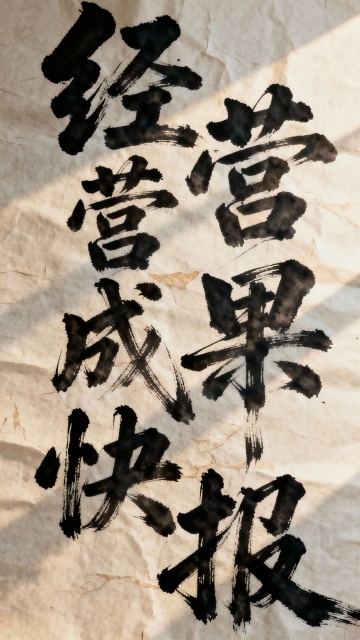 经营
营
成果
快报